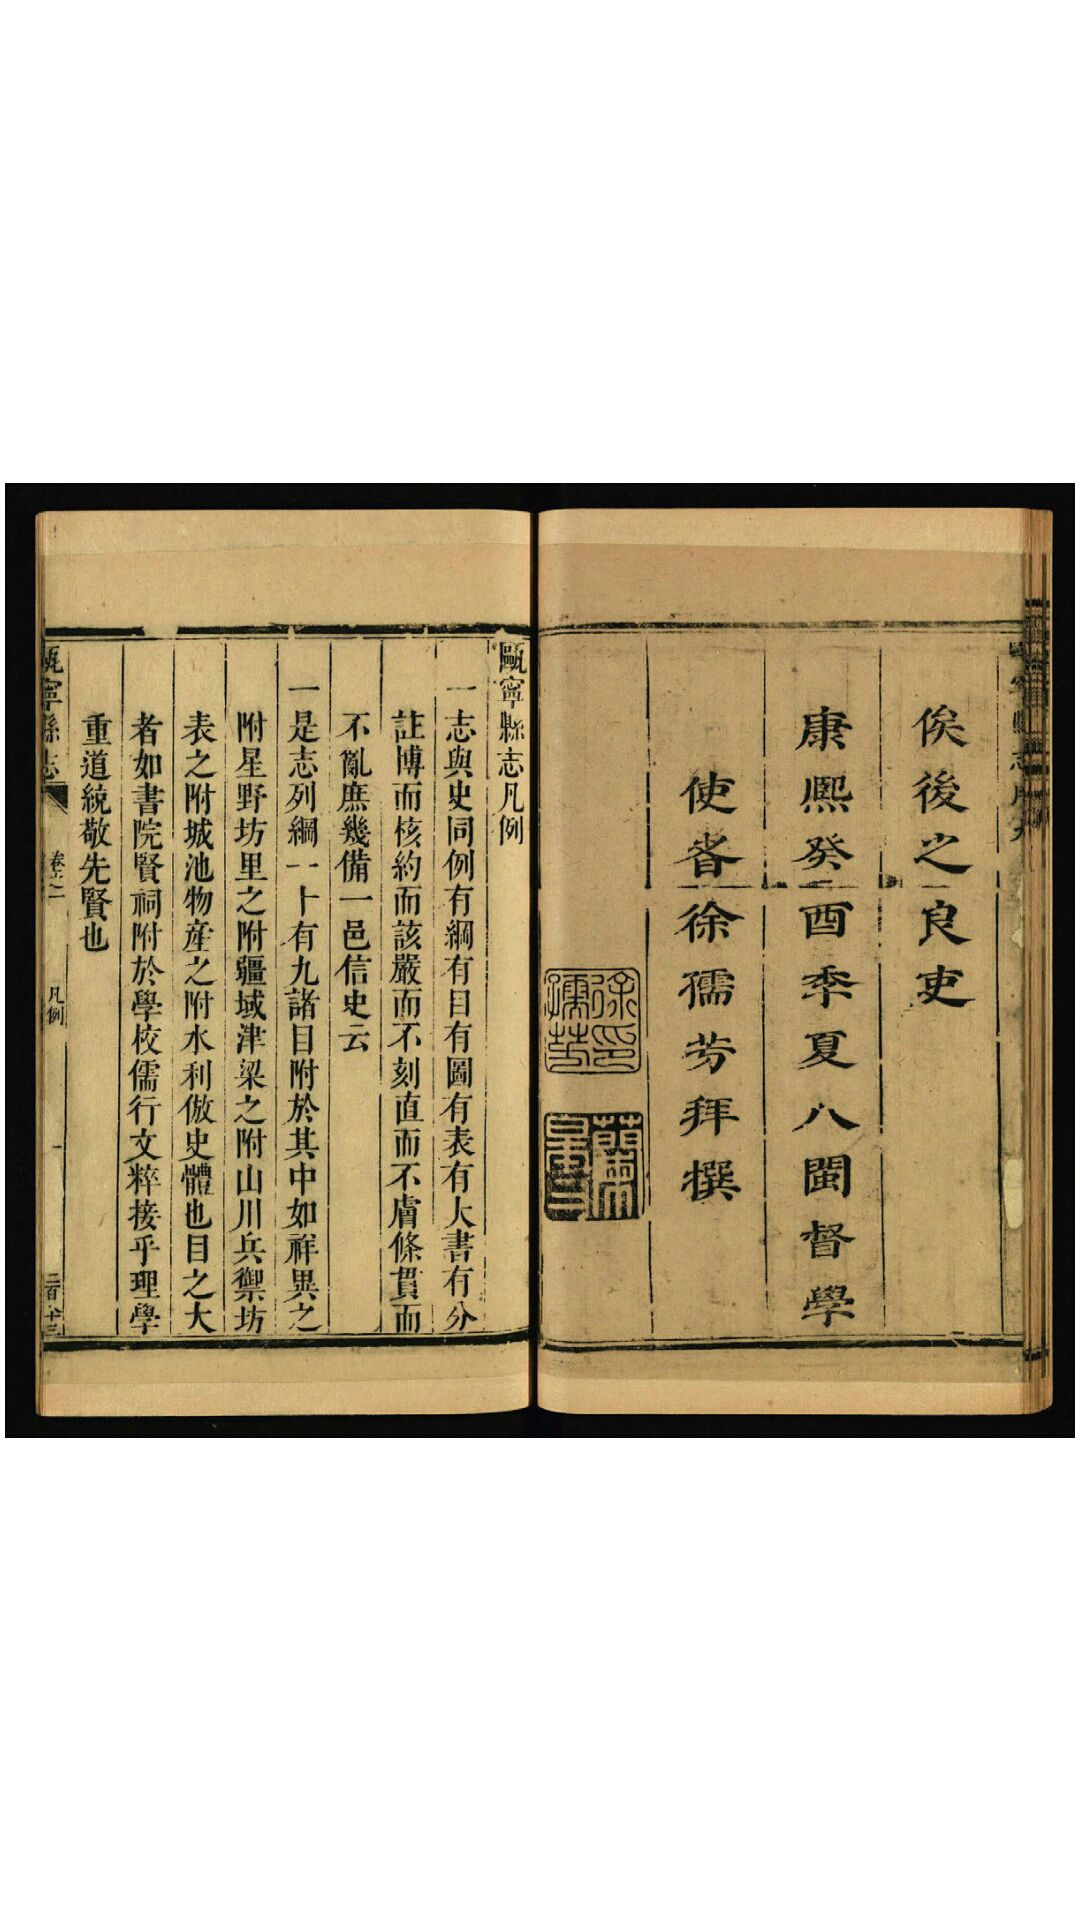 俟後之良吏
康熙癸酉季夏八閩督學
使者徐孺芳拜撰
甌寧縣志凡例
一志與史同例有綱有目有圖有表有大書有分
註博而核約而該嚴而不刻直而不膚條貫而
不亂庶幾備一邑信史云
一是志列綱一十有九諸目附於其中如祥異之
附星野坊里之附疆域津梁之附山川兵禦坊
表之附城池物產之附水利倣史體也目之大
者如書院賢祠附於學校儒行文粹接乎理學
重道統敬先賢也
甌寧縣志 卷之一 凡例 一